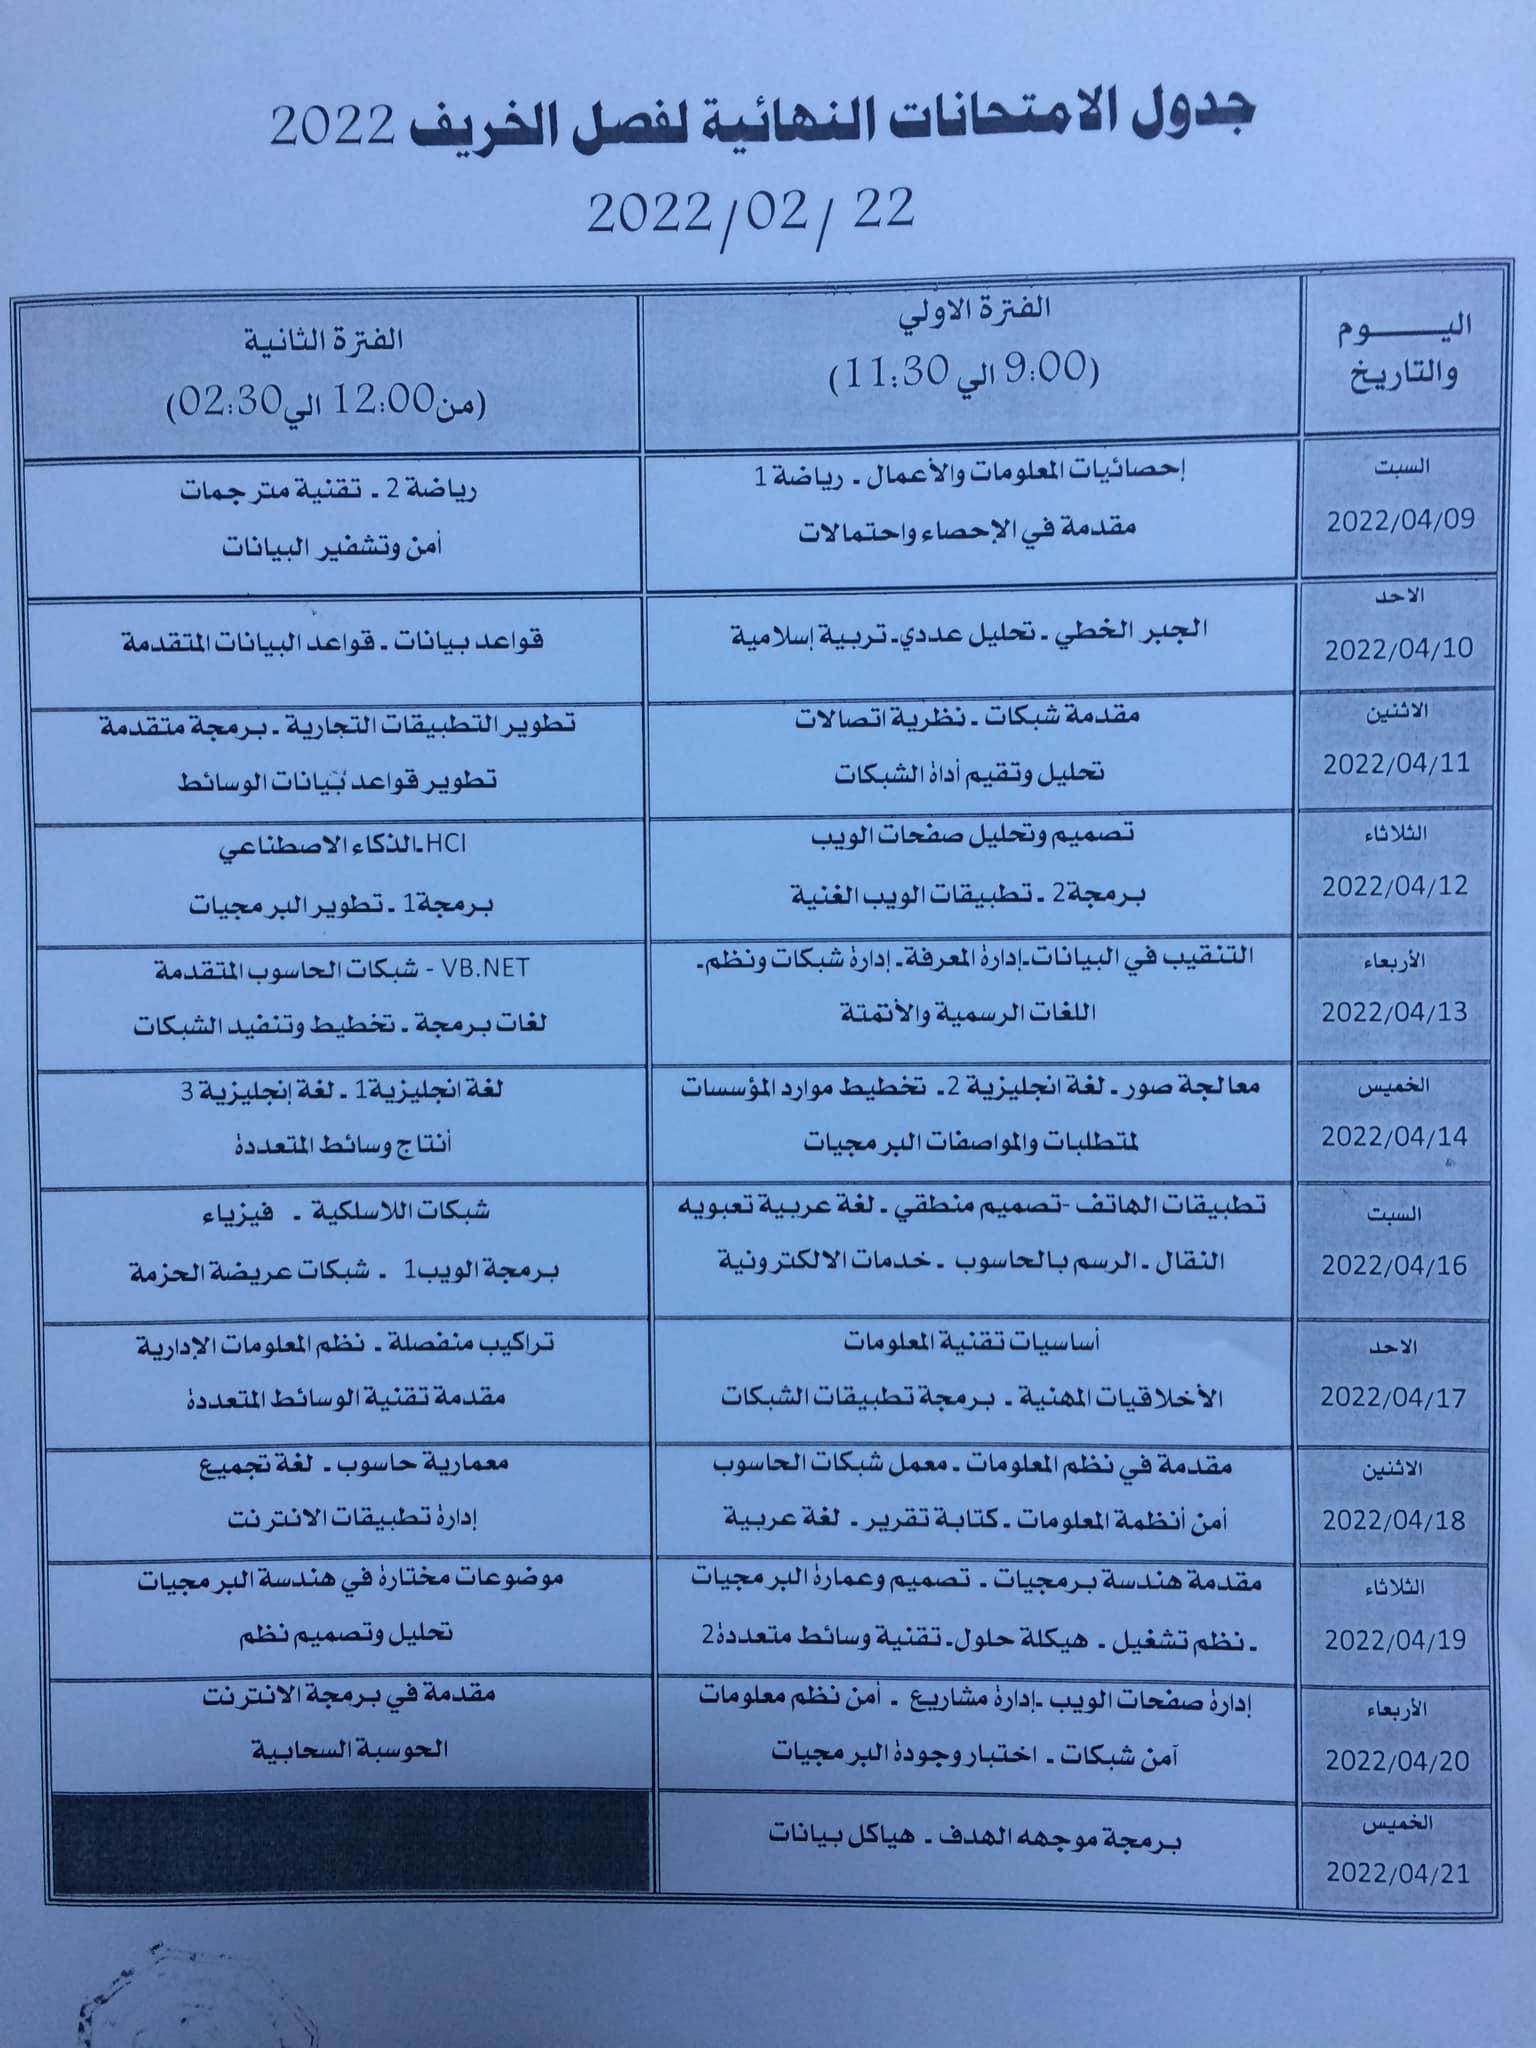 جدول الامتحانات النهائية لفصل الخريف 2022
2022/02/ 22
اليـــــوم والتاريخ
الفترة الاولي
(9:00 الي 11:30)
الفترة الثانية
(من12:00 الي02:30)
السبت
2022/04/09
إحصائيات المعلومات والأعمال ـ رياضة 1
مقدمة في الإحصاء واحتمالات
رياضة 2 ـ تقنية مترجمات
أمن وتشفير البيانات
الاحد
2022/04/10
الجبر الخطي ـ تحليل عددي ـ تربية إسلامية
قواعد بيانات ـ قواعد البيانات المتقدمة
الاثنين
2022/04/11
مقدمة شبكات ـ نظرية اتصالات
تحليل وتقيم أداة الشبكات
تطوير التطبيقات التجارية ـ برمجة متقدمة
تطوير قواعد بيانات الوسائط
الثلاثاء
2022/04/12
تصميم وتحليل صفحات الويب
برمجة2 ـ تطبيقات الويب الغنية
HCI ـ الذكاء الاصطناعي
برمجة1 ـ تطوير البرمجيات
الأربعاء
2022/04/13
التنقيب في البيانات ـ إدارة المعرفة ـ إدارة شبكات ونظم ـ
اللغات الرسمية والأتمتة
VB.NET - شبكات الحاسوب المتقدمة
لغات برمجة ـ تخطيط وتنفيد الشبكات
الخميس
2022/04/14
معالجة صور ـ لغة انجليزية 2 ـ تخطيط موارد المؤسسات
لمتطلبات والمواصفات البرمجيات
لغة انجليزية1 ـ لغة إنجليزية 3
أنتاج وسائط المتعددة
السبت
2022/04/16
تطبيقات الهاتف -تصميم منطقي ـ لغة عربية تعبويه
النقال ـ الرسم بالحاسوب ـ خدمات الالكترونية
شبكات اللاسلكية ـ فيزياء
برمجة الويب1 ـ شبكات عريضة الحزمة
الاحد
2022/04/17
أساسيات تقنية المعلومات
الأخلاقيات المهنية ـ برمجة تطبيقات الشبكات
تراكيب منفصلة ـ نظم المعلومات الإدارية
مقدمة تقنية الوسائط المتعددة
الاثنين
2022/04/18
مقدمة في نظم المعلومات ـ معمل شبكات الحاسوب
أمن أنظمة المعلومات ـ كتابة تقرير ـ لغة عربية
معمارية حاسوب ـ لغة تجميع
إدارة تطبيقات الانترنت
الثلاثاء
2022/04/19
مقدمة هندسة برمجيات ـ تصميم وعمارة البرمجيات
ـ نظم تشغيل ـ هيكلة حلول ـ تقنية وسائط متعددة2
موضوعات مختارة في هندسة البرمجيات
تحليل وتصميم نظم
الأربعاء
2022/04/20
إدارة صفحات الويب ـ إدارة مشاريع ـ أمن نظم معلومات
آمن شبكات ـ اختبار وجودة البرمجيات
مقدمة في برمجة الانترنت
الحوسبة السحابية
الخميس
2022/04/21
برمجة موجهه الهدف ـ هياكل بيانات